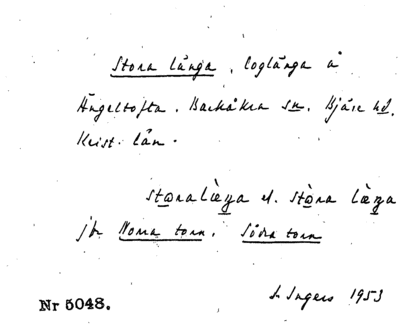 Stora långa, loglånga å
Ängeltofta. Barkåkra sn. Bjäre hd.
Krist. län.
stora læŋa el. stòra læŋa
jfr Norra torn, Södra torn
S. Ingers 1953
Nr 5048.